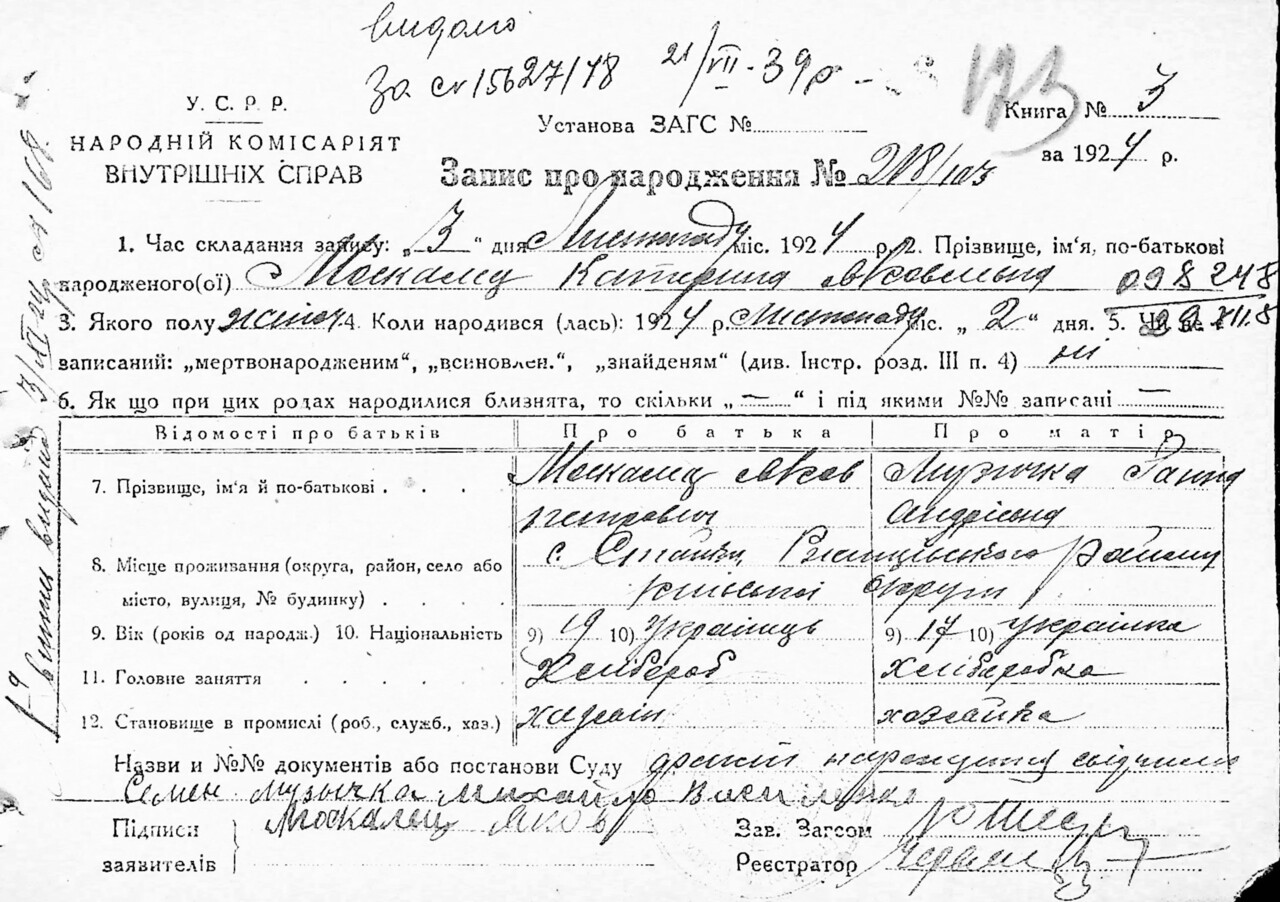 видано
За № 15627/48 21/VII-39р
173
У. С. Р. Р.
НАРОДНІЙ КОМІСАРІЯТ
ВНУТРІШНІХ СПРАВ
Установа ЗАГС №
Книга № 3
за 1924 р.
Запис про народження № 218/103
1. Час складання запису: „3“ дня Листопаду міс. 1924 р. 2. Прізвище, ім‘я, по-батькові
народженого(ої) Москалец Катерина Яковлевна 098248
3. Якого полу жіноч 4. Коли народився (лась): 1924 р. листопаду міс. „2“ дня. 5. Чи не є
записаний: „мертвонародженим“, „всиновлен.“, „знайденям“ (див. Інстр. розд. III п. 4) ні
6. Як що при цих родах народилися близнята, то скільки „—“ і під якими №№ записані —
Відомості про батьків Про батька Про матір
7. Прізвище, ім‘я й по-батькові . . . . Москалец Яков Музичка Ганна
петрович Андрієвна
8. Місце проживання (округа, район, село або с. Стайки, Ржищівського Району
місто, вулиця, № будинку) . . . . київської округи
9. Вік (років од народж.) 10. Національність 9) 19 10) Українець 9) 17 10) Українка
11. Головне заняття . . . . . Хлібороб хліборобка
12. Становище в промислі (роб., служб., хаз.) хазяін хозяйка
Назви и №№ документів або постанови Суду
Семен Музычка Михайло Василенко
Підписи Москалец Яков
заявителів
Зав. Загсом
Реєстратор